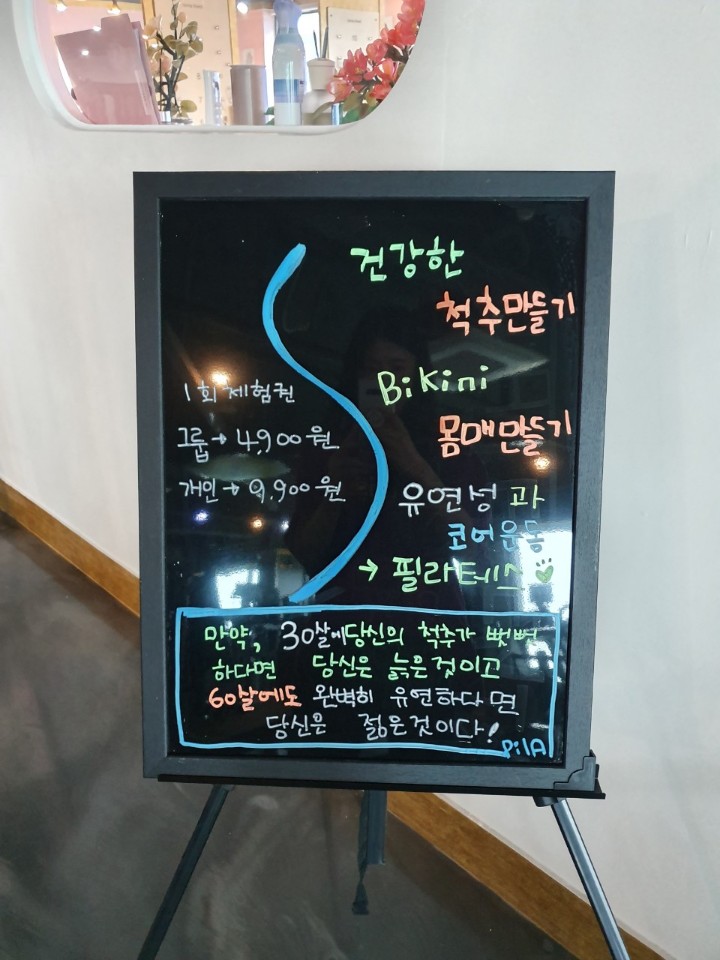 건강한
척추만들기
Bikini
몸매만들기
1회 체험권
그룹→ 4,900원
개인→ 9,900원
유연성과
코어운동
→ 필라테스
만약, 30살에 당신의 척추가 뻣뻣
하다면 당신은 늙은것이고
60살에도 완벽히 유연하다면
당신은 젊은것이다!
PilA